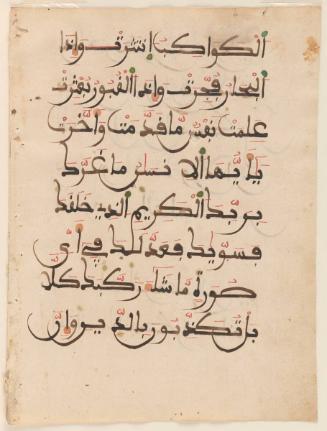 الكواكب انتثرت واذا
البحار فجرت واذا القبور بعثرت
علمت نفس ما قدمت واخرت
يايها الانسن ما غرك
بربك الكريم الذي خلقك
فسويك فعدلك في اي
صورة ما شا ركبك كلا
بل تكذبون بالدين وان